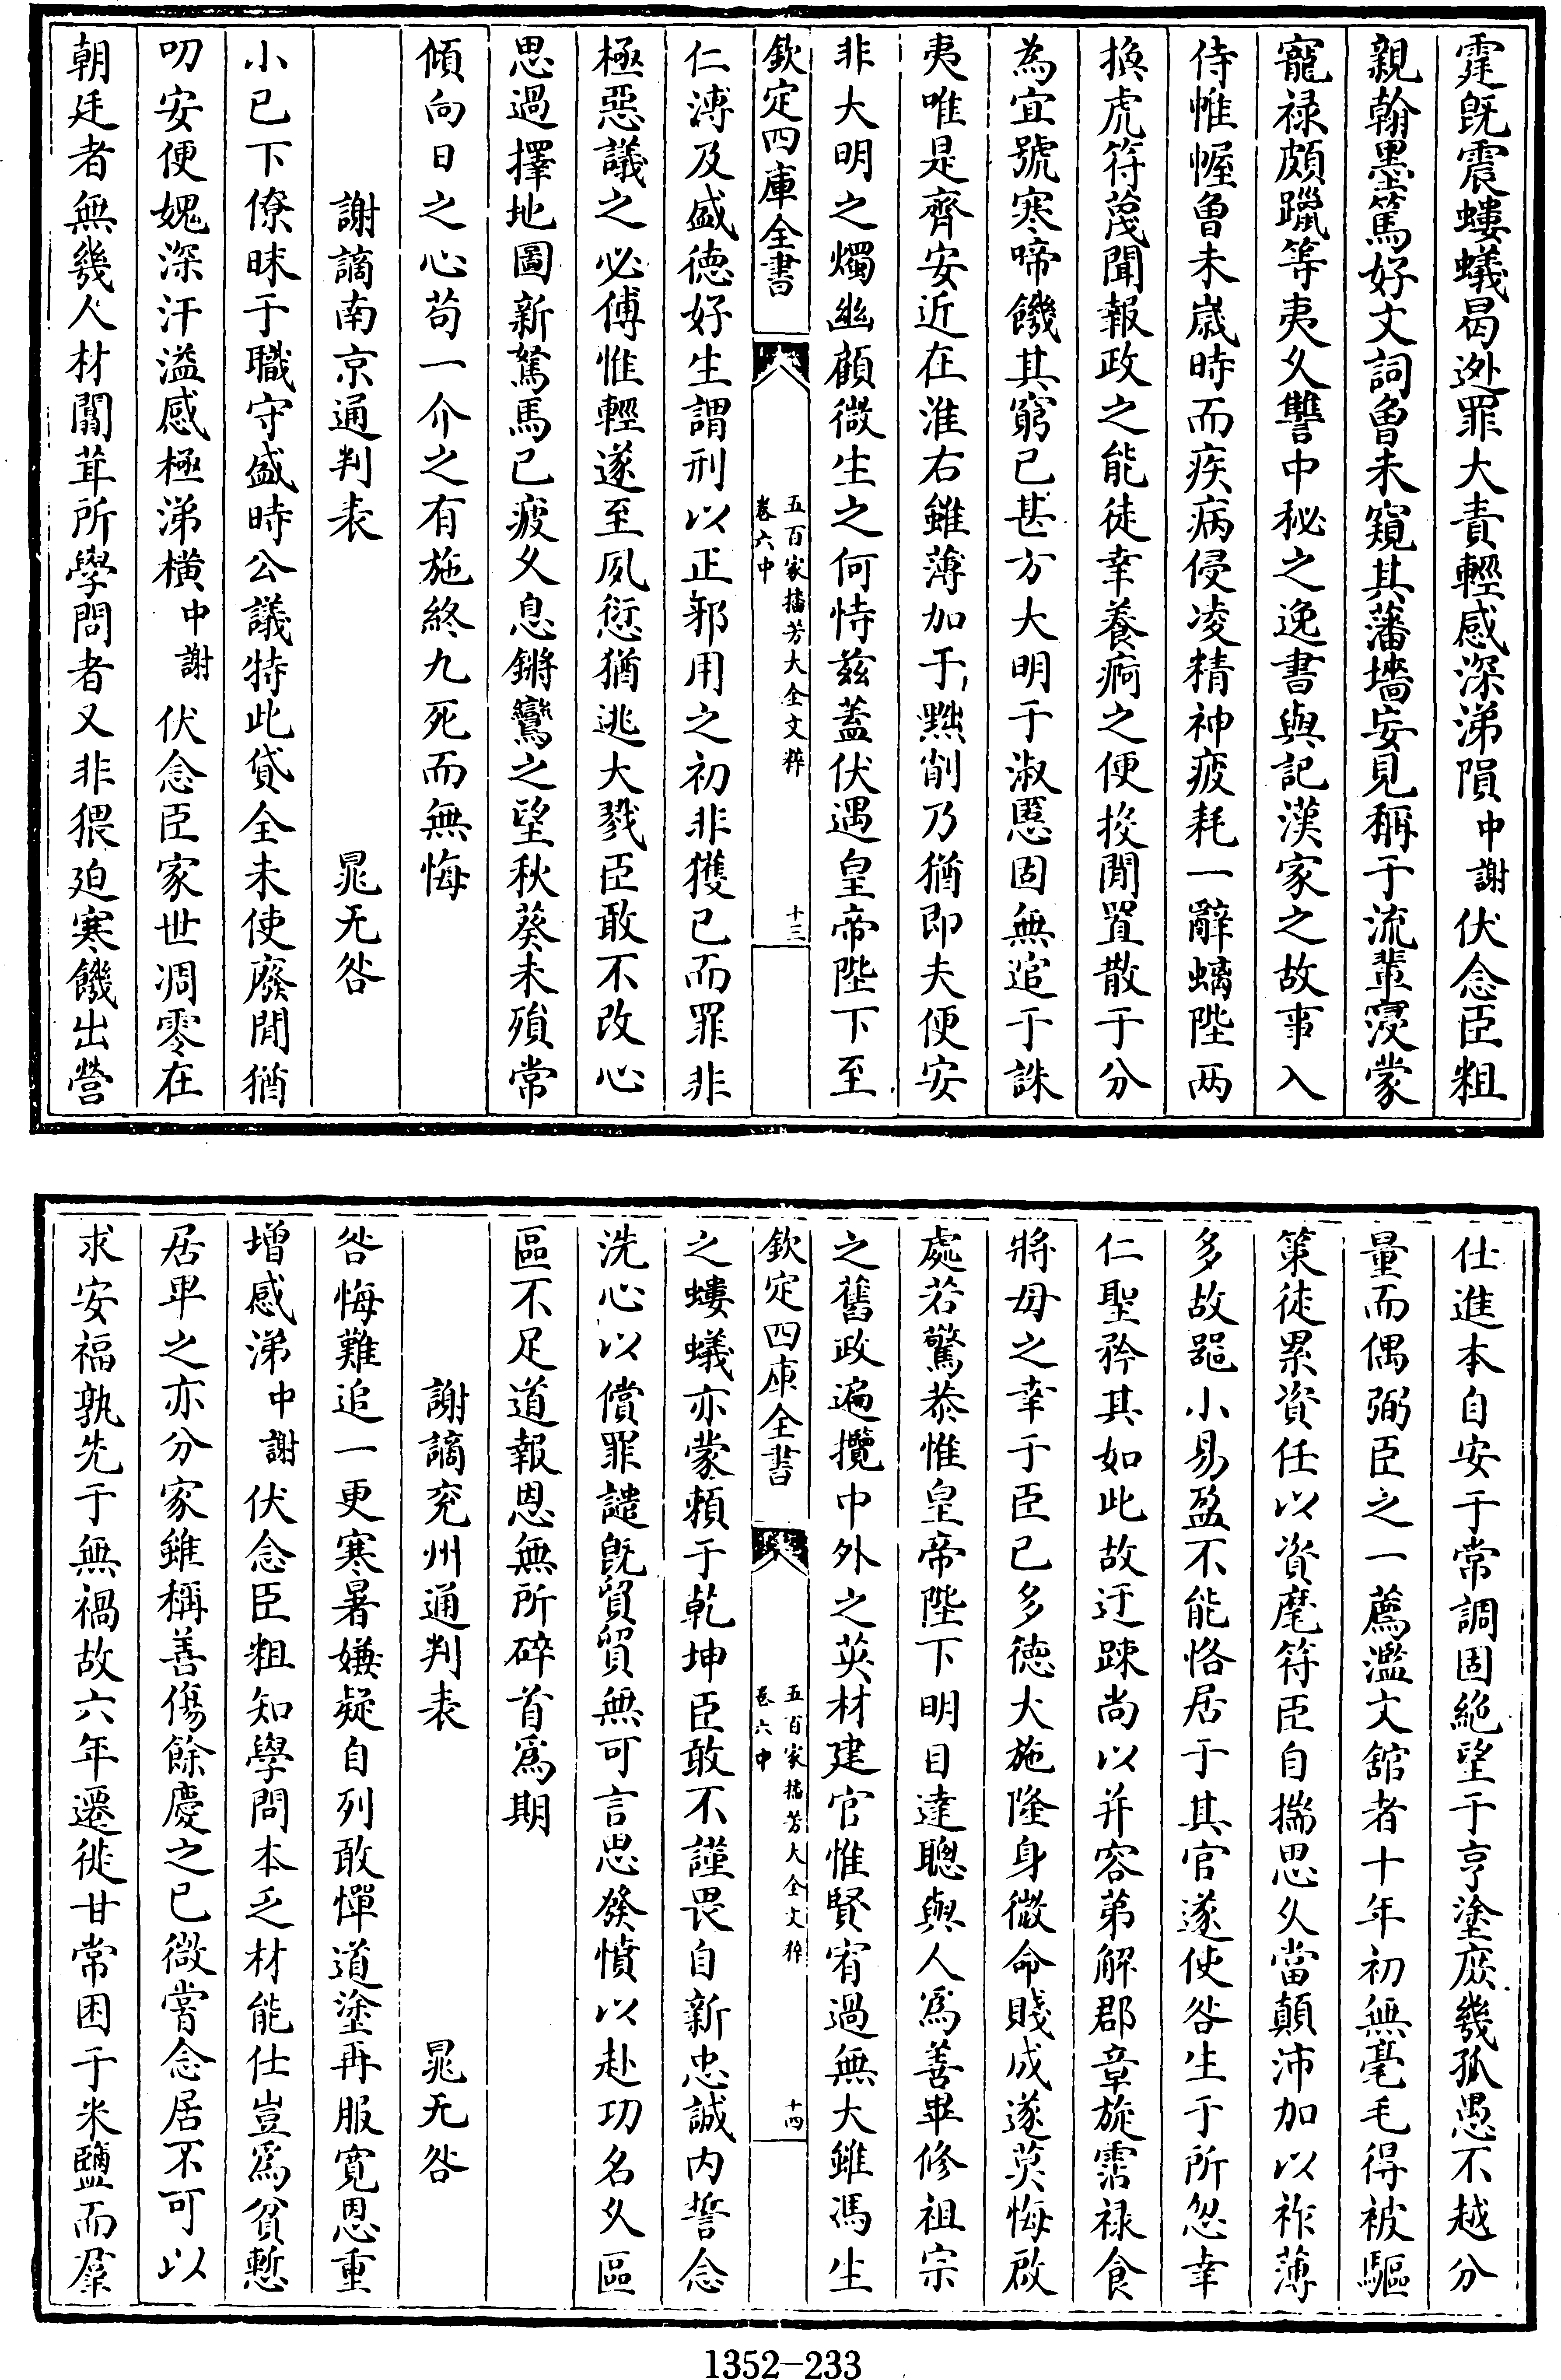 霆既震螻蟻曷逃罪大責輕感深涕隕中謝伏念臣粗
親翰墨篤好文詞曾未窺其藩墻安見稱于流輩寖蒙
寵祿頗躐等夷久讐中秘之逸書與記漢家之故事入
侍帷幄曾未歲時而疾病侵凌精神疲耗一辭螭陛兩
換虎符蔑聞報政之能徒幸養痾之便投閒置散于分
為宜號寒啼饑其窮已甚方大明于淑慝固無逭于誅
夷唯是齊安近在淮右雖薄加于黜削乃猶即夫便安
非大明之燭幽顧微生之何恃茲蓋伏遇皇帝陛下至
欽定四庫全書
五百家播芳大全文粹
卷六中
十三
仁溥及盛德好生謂刑以正邪用之初非獲已而罪非
極惡議之必傅惟輕遂至夙愆猶逃大戮臣敢不改心
思過擇地圖新駑馬已疲久息鏘鸞之望秋葵未殞常
傾向日之心苟一介之有施終九死而無悔
謝謫南京通判表
晁无咎
小已下僚昧于職守盛時公議特此貸全未使廢閒猶
叨安便媿深汗溢感極涕橫中謝伏念臣家世凋零在
朝廷者無幾人材闒茸所學問者又非猥迫寒饑出營
仕進本自安于常調固絕望于亨塗庶幾孤愚不越分
量而偶弼臣之一薦濫文舘者十年初無毫毛得被驅
策徒累資任以資麾符臣自揣思久當顛沛加以祚薄
多故噐小易盈不能恪居于其官遂使咎生于所忽幸
仁聖矜其如此故迂疎尚以并容第解郡章旋霑祿食
將母之幸于臣已多德大施隆身微命賤成遂莫悔啟
處若驚恭惟皇帝陛下明目達聰與人為善畢修祖宗
之舊政遍攬中外之英材建官惟賢宥過無大雖馮生
欽定四庫全書
五百家播芳大全文粹
卷六中
十四
之螻蟻亦蒙頼于乾坤臣敢不謹畏自新忠誠內誓念
洗心以償罪譴既貿貿無可言思發憤以赴功名久區
區不足道報恩無所碎首為期
謝謫兖州通判表
晁无咎
咎悔難追一更寒暑嫌疑自列敢憚道塗再服寬恩重
增感涕中謝伏念臣粗知學問本乏材能仕豈為貧慙
居卑之亦分家雖稱善傷餘慶之已微嘗念居不可以
求安福孰先于無禍故六年遷徙甘常困于米鹽而羣
1352—233